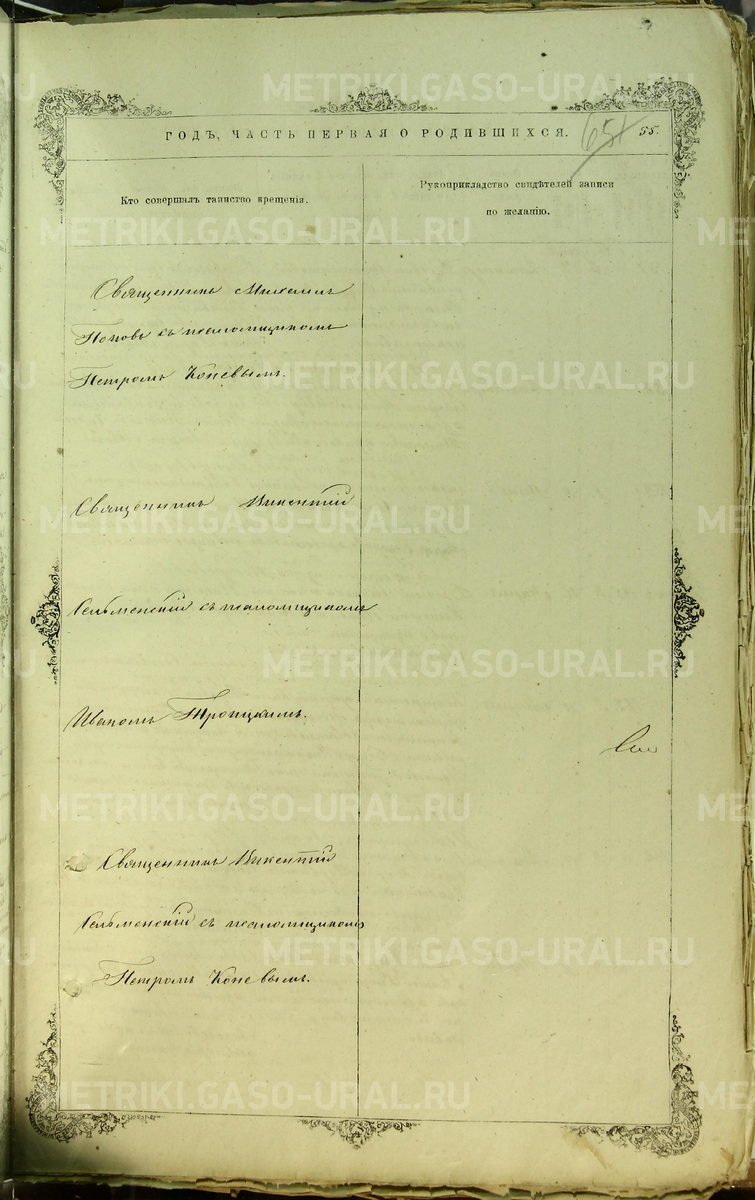 METRIKI.GASO-URAL.RU
ГОДЪ, ЧАСТЬ ПЕРВАЯ О РОДИВШИХСЯ.
651
55.
Кто совершалъ таинство крещенія.
Рукоприкладство свидѣтелей записи
по желанію.
Священникъ Михаилъ
Поповъ съ псаломщикомъ
Петромъ Коневымъ.
Священникъ Викентій
Сельменскій съ псаломщикомъ
Иваномъ Троицкимъ.
Священникъ Викентій
Сельменскій съ псаломщикомъ
Петромъ Коневымъ.